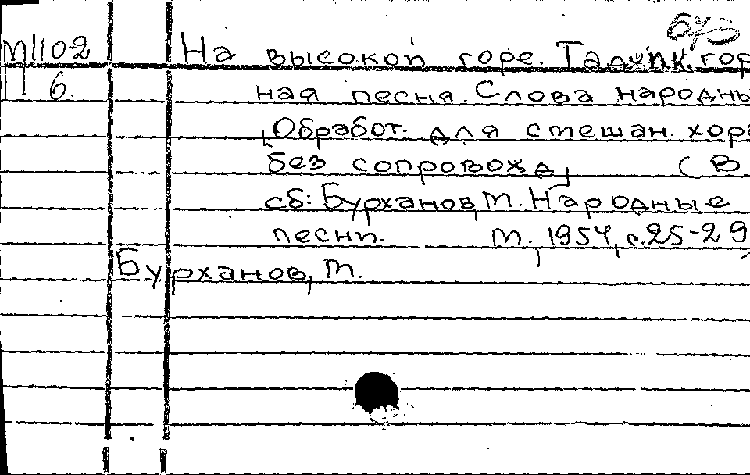 673
М1102 На высокой горе. Таджик. гор
П 6. ная песня. Слова народны
[Обработ. для смешан. хора
без сопровожд] (В
сб: Бурханов, М. Народные
песни. М., 1954, с.25-29
Бурханов, М.